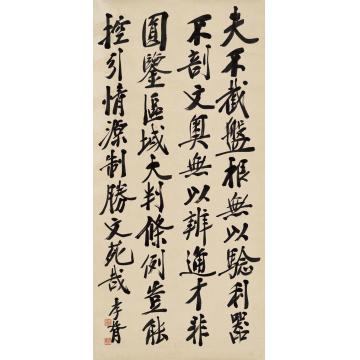 夫不截盤根無以驗利器
不剖文奧無以辨通才非
圓鑒區域大判條例豈能
控引情源制勝文苑哉 李胥